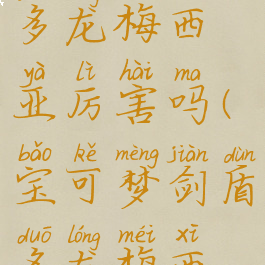 多龙梅西
yà lì hài ma
亚厉害吗(
bǎo kě mèng jiàn dùn
宝可梦剑盾
duō lóng méi xī
多龙梅西